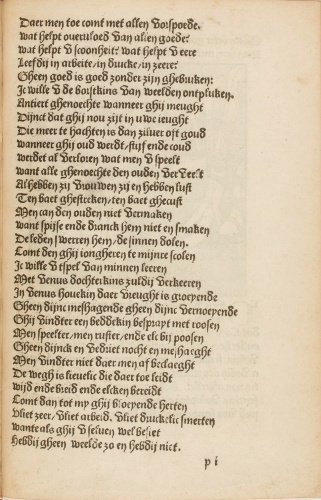 Daer men toe comt met allen vorspoede.
wat helpt overvloed van allen goede?
wat helpt v scoonheit? wat helpt v eere
Leefdij in arbeite/in drucke/in zeere?
Gheen goed is goed zonder zijn ghebruken:
Ic wille v de borstkins van weelden ontpluken.
Antiert ghenoechte wanneer ghij meught
Dijnct dat ghij nou zijt in uwe ieught
Die meer te hachten is dan zilver oft goud
wanneer ghij oud werdt/stijf ende coud
werdet al verloren wat men v speelt
want alle ghenoechte den ouden verveelt
Al hebben zij vrouwen zij en hebben lust
Ten baet ghesteken/ten baet ghecust
Men can den ouden niet vermaken
want spijse ende dranck hem niet en smaken
De leden swerren hem/de sinnen dolen.
Comt den ghij iongheren te mijnre scolen
Ic wille v tspel van minnen leeren
Met Venus dochterkins zuldij verkeeren
In Venus hovekin daer vreught is groeyende
Gheen dijnc meshagende gheen dijnc vernoeyende
Ghij vindter een beddekin besprayt met roosen
Men speelter/men rustter/ende elc bij poosen
Gheen dijnck en vedriet nocht en meshaeght
Men vindter niet daer men af beclaeght
De wegh is lieuelic die daer toe leidt
wijd ende breid ende elcken bereidt
Comt dan tot my ghij bloeyende herten
Vliet zeer/vliet arbeid. vliet druckelic smerten
want als ghij v seluen wel besiet
Hebdij gheen weelde zo en hebdij niet.
p i